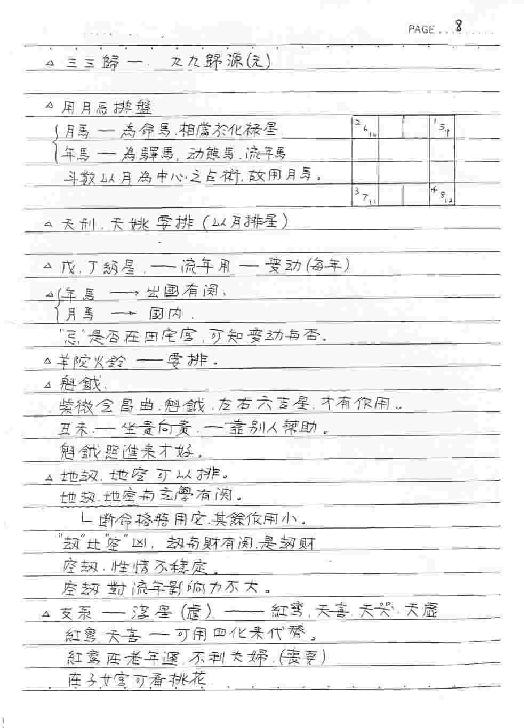 PAGE 8
△ 三三歸一. 九九歸源(元)
△ 用月馬排盤
月馬 — 為命馬.相當於化祿星
年馬 — 為驛馬, 动態馬.流年馬
斗數以月為中心之占術,故用月馬。
2 6 10
1 5 9
3 7 11
4 8 12
△ 天刑.天姚要排(以月排星)
△ 戊.丁納星.— 流年用 — 变动(每年)
△ 年馬 → 出國有関、
月馬 → 国内.
"忌"是否在田宅宮,可知变动与否。
△ 羊陀火鈴 — 要排。
△ 魁鉞.
紫微会昌曲.魁鉞.左右六吉星.才有作用。
丑未.— 坐貴向貴.— 靠别人幫助。
魁鉞照進来才好。
△ 地劫.地空可以排。
地劫.地空与玄學有関。
└ 断命格時用它.其餘作用小。
"劫"比"空"凶, 劫与財有関.是劫財
空劫.性情不穩定。
空劫對流年影响力不大。
△ 支系 — 浮星(虛) — 紅鸞.天喜.天哭.天虛
紅鸞天喜 — 可用四化来代替。
紅鸞在老年運.不利夫婦.(喪妻)
在子女宮可看桃花